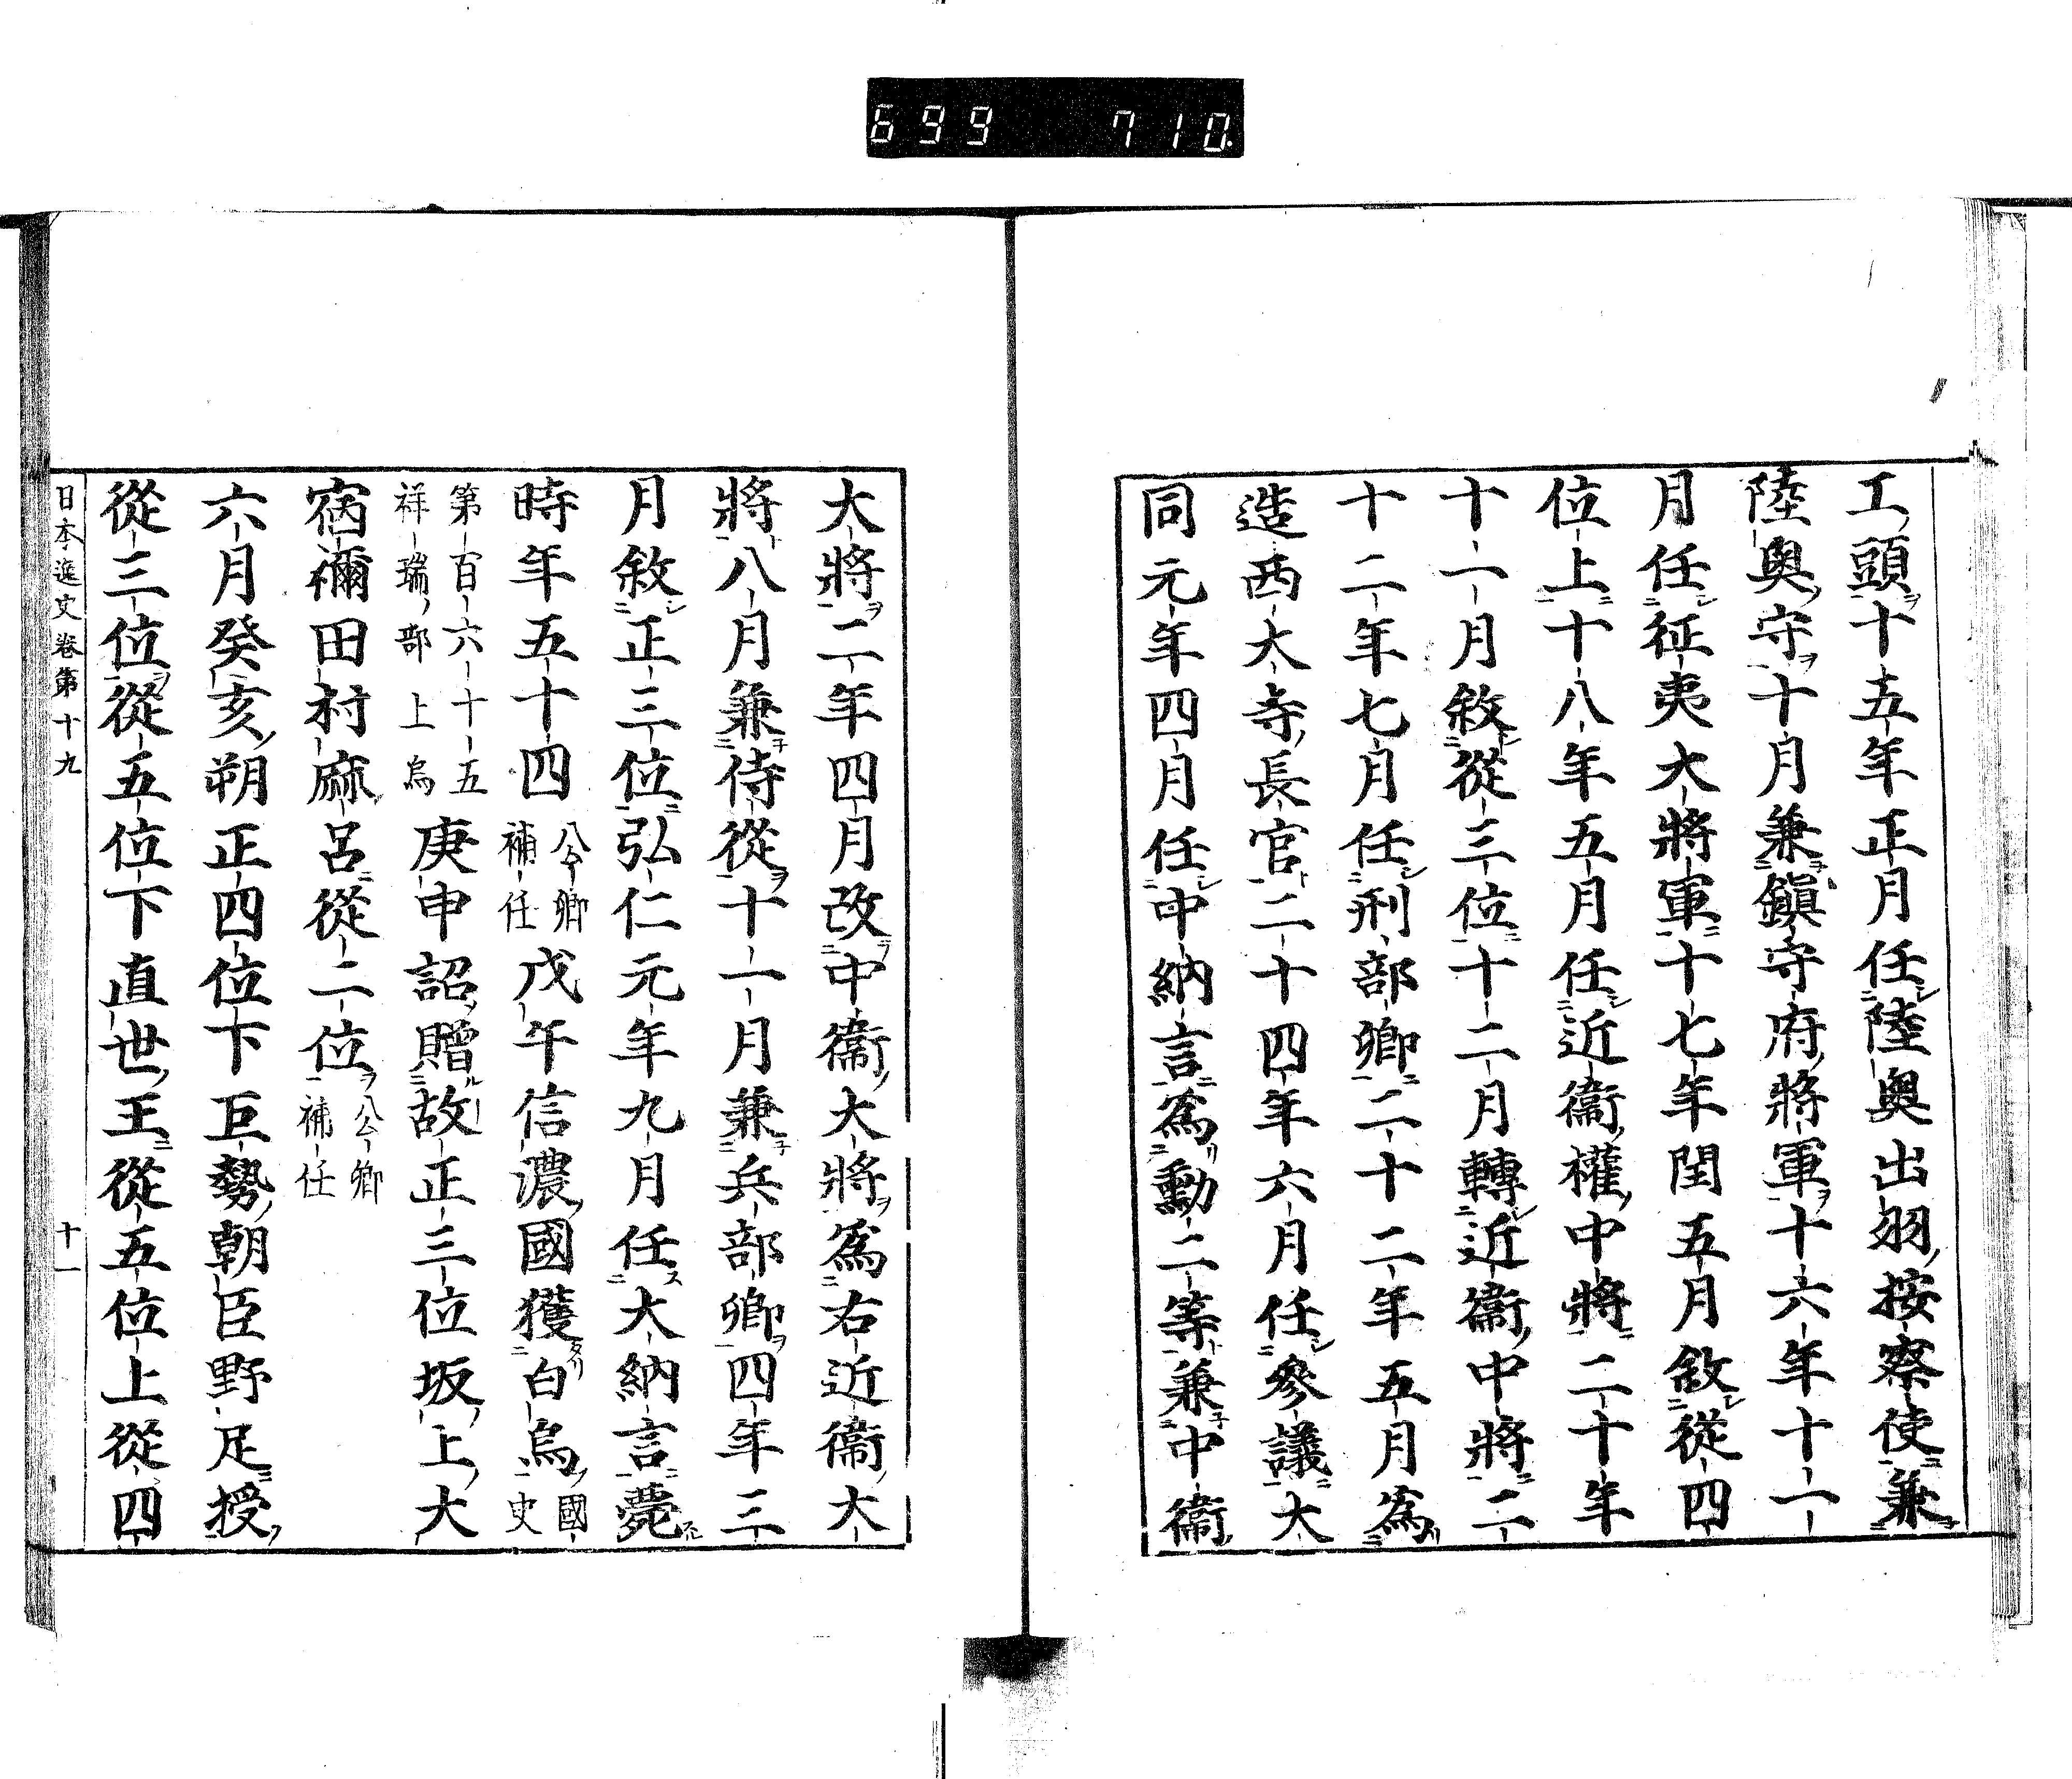 699 710
工頭十五年正月任陸奥出羽按察使兼
陸奥守十月兼鎮守府將軍十六年十一
月任征夷大將軍十七年閏五月敘從四
位上十八年五月任近衞權中將二十年
十一月敘從三位十二月轉近衞中將二
十二年七月任刑部卿二十二年五月為
造西大寺長官二十四年六月任參議大
同元年四月任中納言為勳二等兼中衞
大將二年四月改中衞大將為右近衞大
將八月兼侍從十一月兼兵部卿四年三
月敘正三位弘仁元年九月任大納言薨
時年五十四公卿補任戊午信濃國獲白烏國史
第百六十五祥瑞部上烏庚申詔贈故正三位坂上大
宿禰田村麻呂從二位公卿補任
六月癸亥朔正四位下巨勢朝臣野足授
從三位從五位下直世王從五位上從四
日本逸史卷第十九 十一